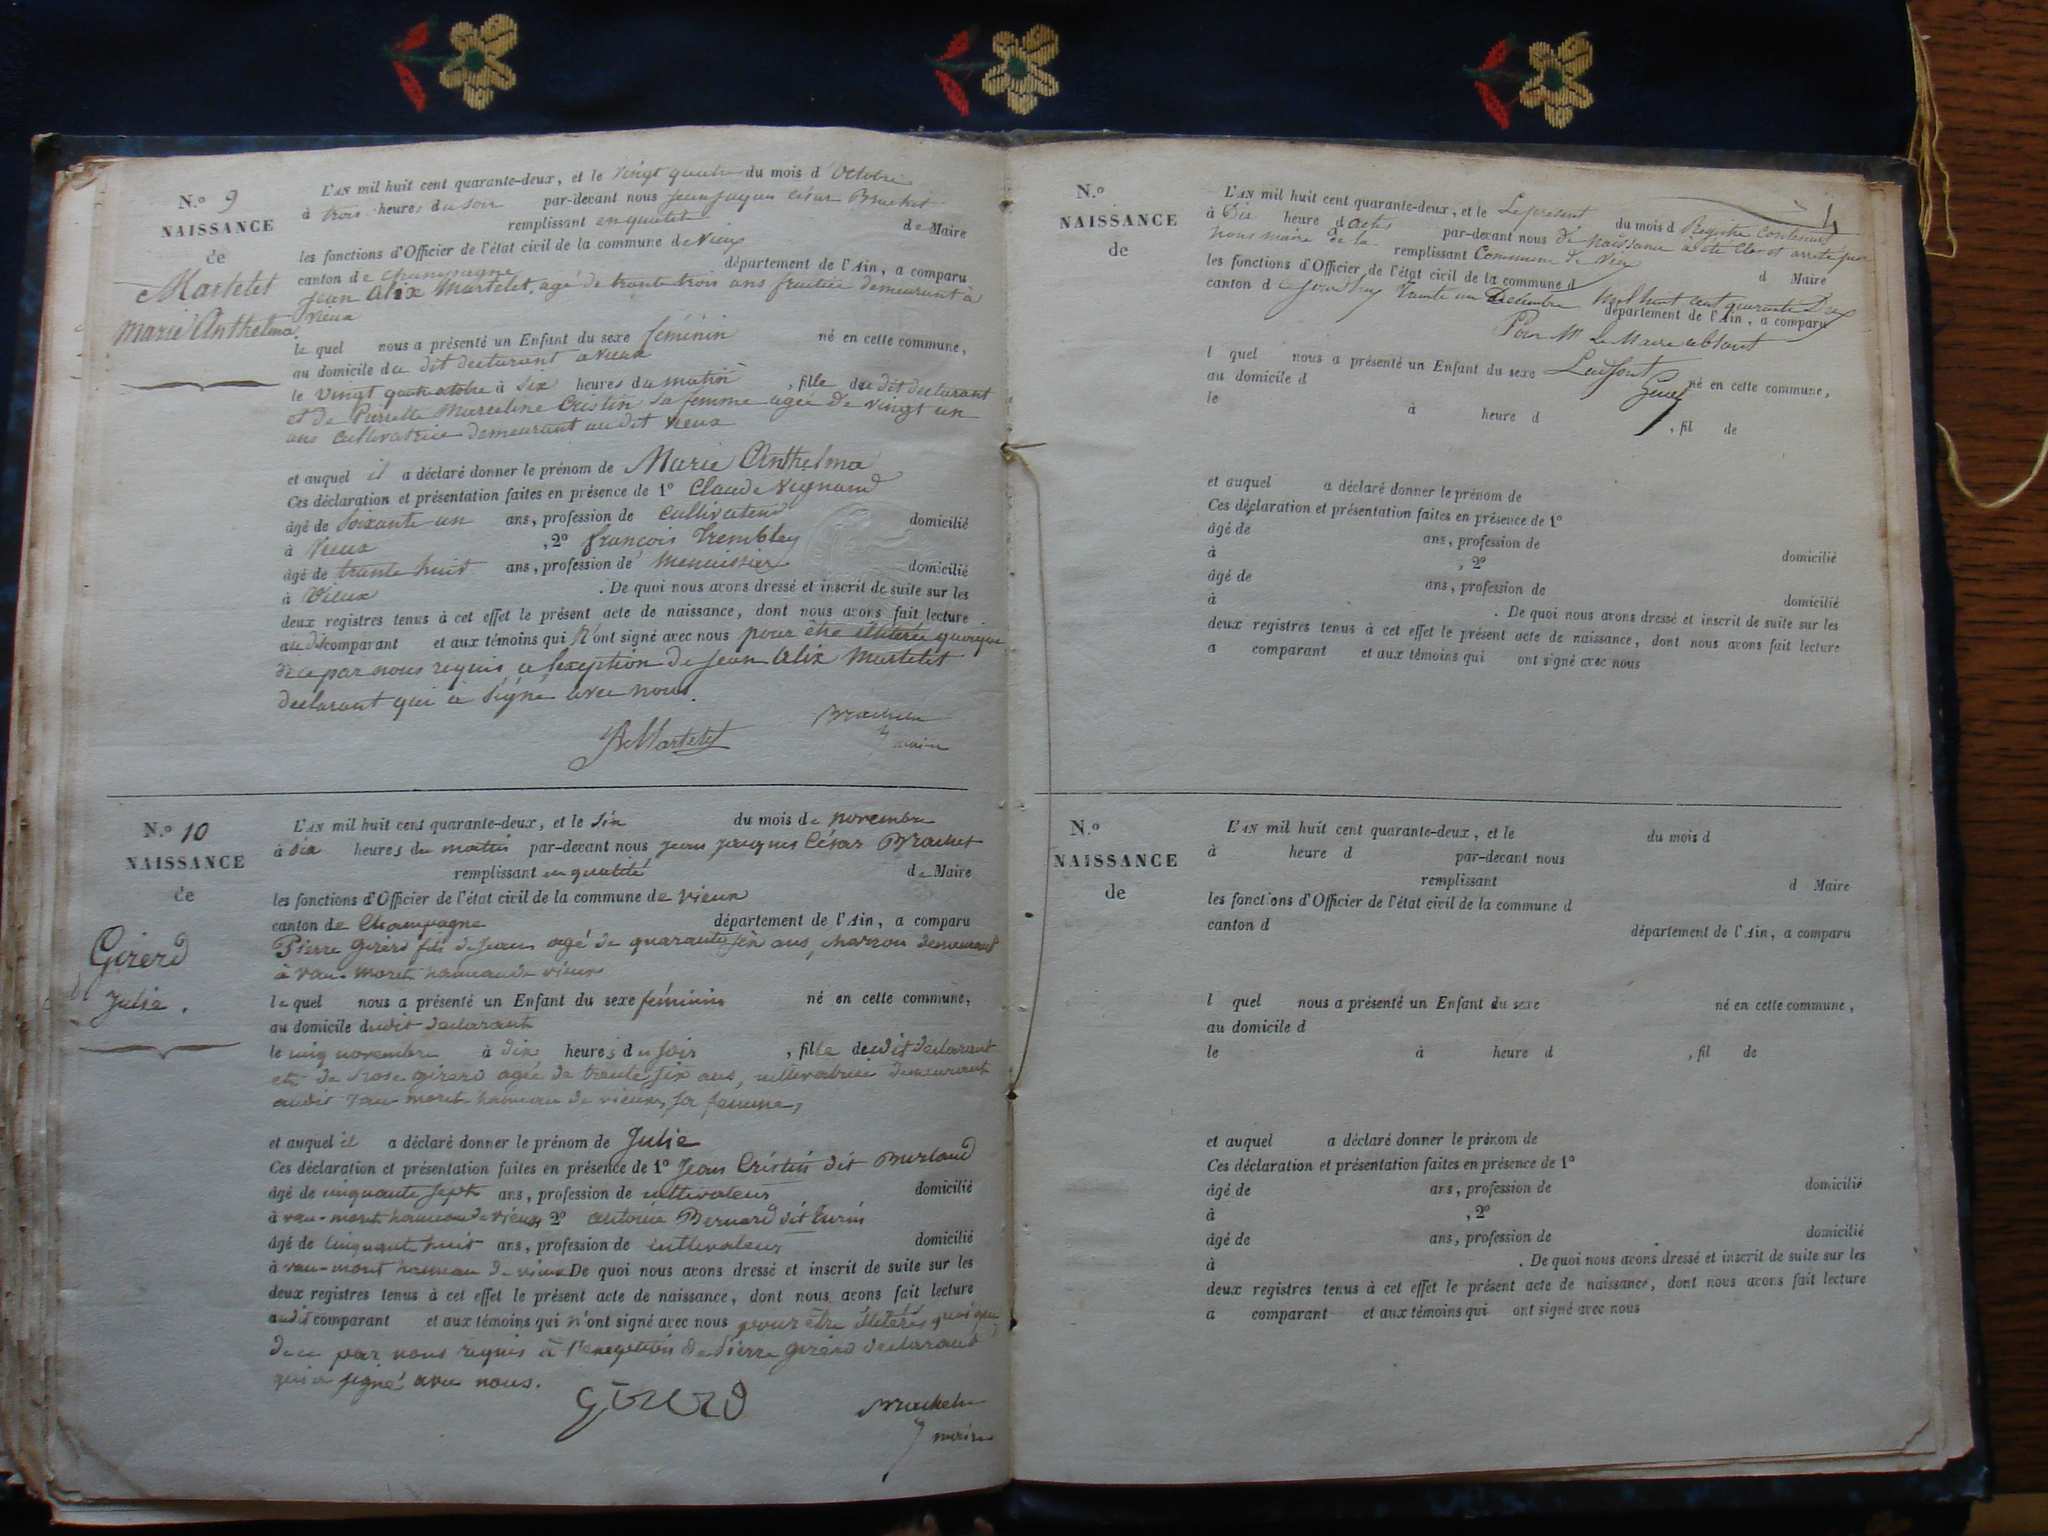 N.º 9
NAISSANCE
de
Martelet
Marie Anthelma
L'AN mil huit cent quarante-deux, et le vingt quatre du mois d'Octobre
à trois heures du soir par-devant nous jean jaques César Brachet
remplissant en qualité de Maire
les fonctions d'Officier de l'état civil de la commune de Vieux
canton de champagne département de l'Ain, a comparu
jean Alix Martelet, agé de trante trois ans fruitier demeurant à
vieux
le quel nous a présenté un Enfant du sexe féminin né en cette commune,
au domicile du dit declarant a vieux
le vingt quatre otobre à six heures du matin, fille du dit declarant
et de Pierrette Marceline Cristin sa femme agée de vingt un
ans cultivatrice demeurant au dit vieux
et auquel il a déclaré donner le prénom de Marie Anthelma
Ces déclaration et présentation faites en présence de 1º Claude Vignand
âgé de soixante un ans, profession de cultivateur domicilié
à Vieux, 2º françois Trembley
âgé de trante huit ans, profession de menuisier domicilié
à Vieux. De quoi nous avons dressé et inscrit de suite sur les
deux registres tenus à cet effet le présent acte de naissance, dont nous avons fait lecture
au dit comparant et aux témoins qui n'ont signé avec nous pour être illiterés quoique
de ce par nous requis, a l'exeption de jean Alix Martelet
declarant qui a signé avec nous.
Martelet
Brachet
maire
N.º 10
NAISSANCE
de
Girerd
Julie.
L'AN mil huit cent quarante-deux, et le six du mois de novembre
à dix heures du matin par-devant nous jean jacques César Brachet
remplissant en qualité de Maire
les fonctions d'Officier de l'état civil de la commune de vieux
canton de Champagne département de l'Ain, a comparu
Pierre girerd fils de jean agé de quarante six ans, charron demeurant
à vau-morets hameau de vieux
le quel nous a présenté un Enfant du sexe féminin né en cette commune,
au domicile dudit declarant
le cinq novembre à dix heures du soir, fille dudit declarant
et de Rose girerd agée de trante six ans, cultivatrice demeurant
audit hameau de vieux, sa femme,
et auquel il a déclaré donner le prénom de Julie
Ces déclaration et présentation faites en présence de 1º Jean Cristin dit Burland
âgé de cinquante sept ans, profession de cultivateur domicilié
à hameau de vieux 2º antoine Bernard dit turin
âgé de cinquante huit ans, profession de cultivateur domicilié
à hameau de vieux De quoi nous avons dressé et inscrit de suite sur les
deux registres tenus à cet effet le présent acte de naissance, dont nous avons fait lecture
audit comparant et aux témoins qui n'ont signé avec nous pour être illiterés quoique
de ce par nous requis à l'exeption de Pierre girerd declarant
qui a signé avec nous.
Girerd
Brachet
maire
N.º
NAISSANCE
de
4
L'AN mil huit cent quarante-deux, et le Le present du mois d Registre contenant
à Dix heure d actes par-devant nous de naissance a été clos et arreté par
nous maire de la remplissant Commune de Vieu d Maire
les fonctions d'Officier de l'état civil de la commune d
canton d ce jourdhuy Trente un Decembre mil huit cent quarante Deux
département de l'Ain, a comparu
Pour Mr Le Maire absent
l quel nous a présenté un Enfant du sexe né en cette commune,
au domicile d
le à heure d, fil de
et auquel a déclaré donner le prénom de
Ces déclaration et présentation faites en présence de 1º
âgé de ans, profession de domicilié
à, 2º
âgé de ans, profession de domicilié
à. De quoi nous avons dressé et inscrit de suite sur les
deux registres tenus à cet effet le présent acte de naissance, dont nous avons fait lecture
a comparant et aux témoins qui ont signé avec nous
N.º
NAISSANCE
de
L'AN mil huit cent quarante-deux, et le du mois d
à heure d par-devant nous
remplissant d Maire
les fonctions d'Officier de l'état civil de la commune d
canton d département de l'Ain, a comparu
l quel nous a présenté un Enfant du sexe né en cette commune,
au domicile d
le à heure d, fil de
et auquel a déclaré donner le prénom de
Ces déclaration et présentation faites en présence de 1º
âgé de ans, profession de domicilié
à, 2º
âgé de ans, profession de domicilié
à. De quoi nous avons dressé et inscrit de suite sur les
deux registres tenus à cet effet le présent acte de naissance, dont nous avons fait lecture
a comparant et aux témoins qui ont signé avec nous